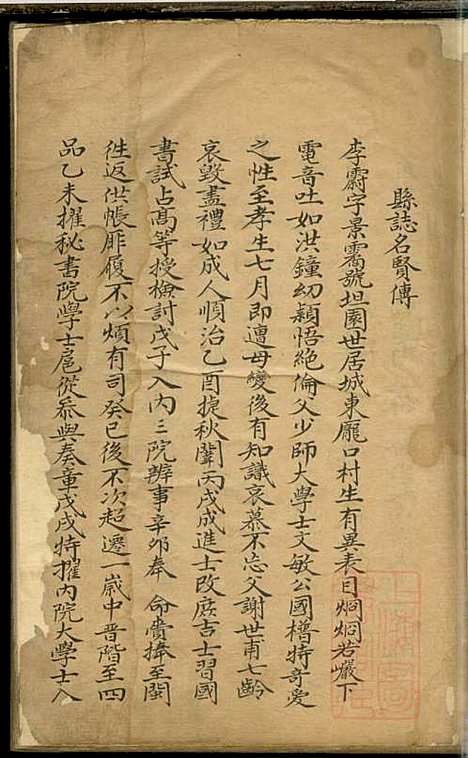 縣誌名賢傳
李霨字景霱號坦園世居城東龐口村生有異表目烱烱若巖下
電音吐如洪鐘幼穎悟絕倫父少師大學士文敏公國𣚴特奇愛
之性至孝生七月即遭母變後有知識哀慕不忘父謝世甫七齡
哀毀盡禮如成人順治乙酉捷秋闈丙戌成進士改庶吉士習國
書試占髙等授檢討戊子入內三院辦事辛卯奉 命賫捧至閩
徃返供帳屝履不以煩有司癸巳後不次超遷一歲中晋階至四
品乙未擢秘書院學士扈從叅與奏章戊戌特擢內院大學士入